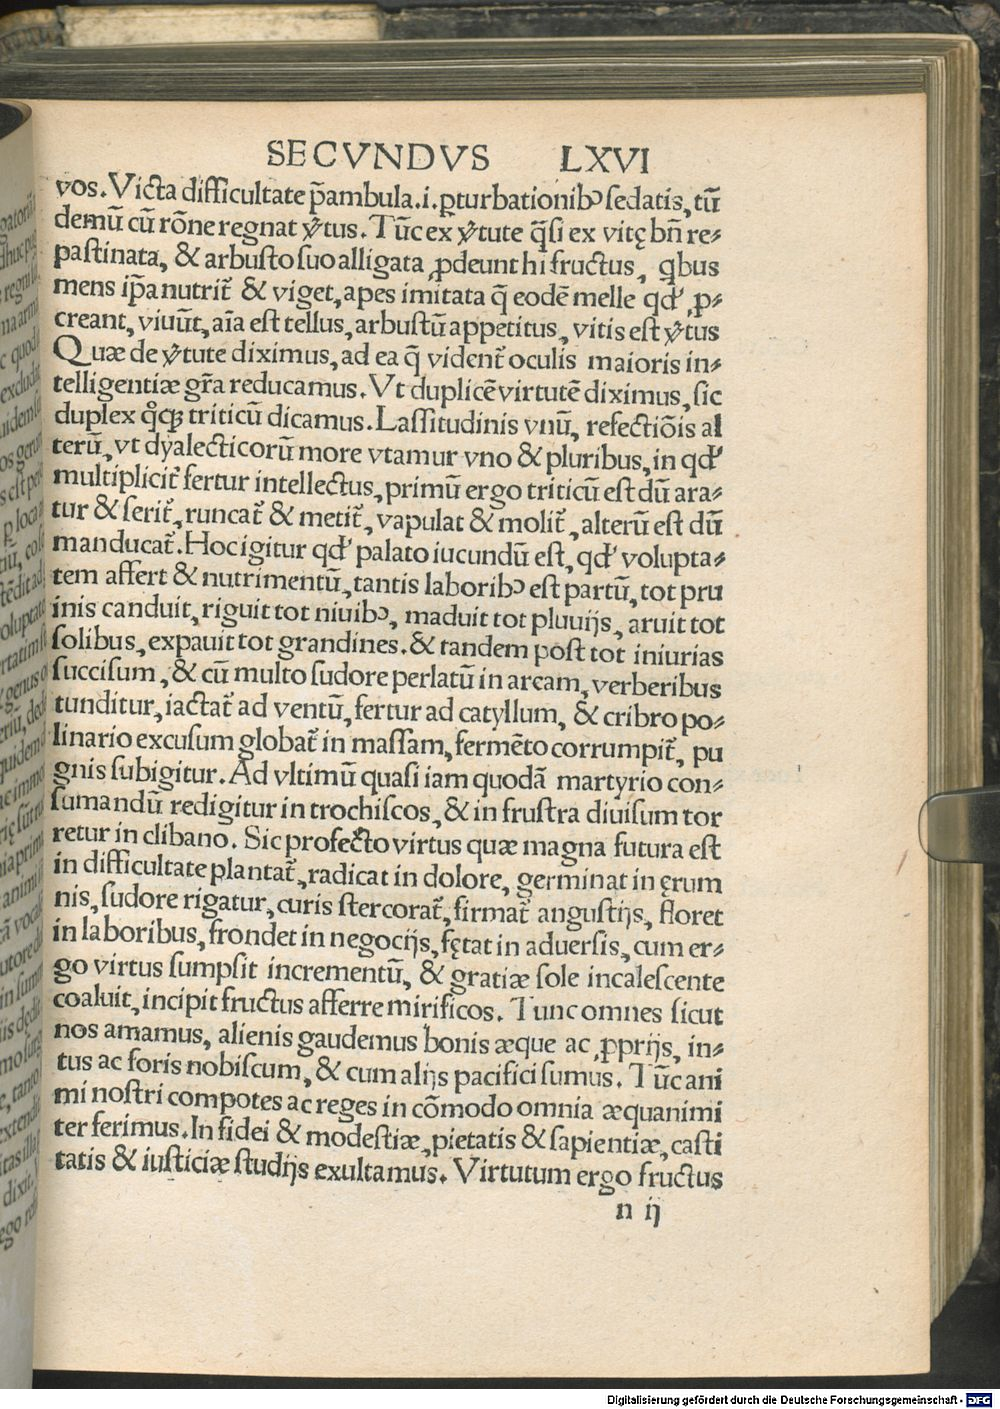 SECVNDVS LXVI
vos. Victa difficultate p̄ambula .i. ꝑturbationibꝰ sedatis, tū
demū cū rōne regnat v̓tus. Tūc ex v̓tute q̄si ex vitę bn̄ re⸗
pastinata, & arbusto suo alligata ꝓdeunt hi fructus, qbus
mens ip̄a nutrit̄ & viget, apes imitata q̄ eodē melle qđ ꝓ⸗
creant, viuūt, aīa est tellus, arbustū appetitus, vitis est v̓tus
Quæ de v̓tute diximus, ad ea q̄ vident̄ oculis maioris in⸗
telligentiæ gr̄a reducamus. Vt duplicē virtutē diximus, sic
duplex qͦqꝫ triticū dicamus. Lassitudinis vnū, refectiōis al
terū, vt dyalecticorū more vtamur vno & pluribus, in qđ
multiplicit̓ fertur intellectus, primū ergo triticū est dū ara⸗
tur & serit̄, runcat̄ & metit̄, vapulat & molit̄, alterū est dū
manducat̄. Hoc igitur qđ palato iucundū est, qđ volupta⸗
tem affert & nutrimentū, tantis laboribꝰ est partū, tot pru
inis canduit, riguit tot niuibꝰ, maduit tot pluuijs, aruit tot
solibus, expauit tot grandines. & tandem post tot iniurias
succisum, & cū multo sudore perlatū in arcam, verberibus
tunditur, iactat̄ ad ventū, fertur ad catyllum, & cribro po⸗
linario excusum globat̄ in massam, fermēto corrumpit̄, pu
gnis subigitur. Ad vltimū quasi iam quodā martyrio con⸗
sumandū redigitur in trochiscos, & in frustra diuisum tor
retur in clibano. Sic profecto virtus quæ magna futura est
in difficultate plantat̄, radicat in dolore, germinat in ęrum
nis, sudore rigatur, curis stercorat̄, firmat̄ angustijs, floret
in laboribus, frondet in negocijs, fętat in aduersis, cum er⸗
go virtus sumpsit incrementū, & gratiæ sole incalescente
coaluit, incipit fructus afferre mirificos. Tunc omnes sicut
nos amamus, alienis gaudemus bonis æque ac ꝓprijs, in⸗
tus ac foris nobiscum, & cum alijs pacifici sumus. Tūc ani
mi nostri compotes ac reges in cōmodo omnia æquanimi
ter ferimus. In fidei & modestiæ, pietatis & sapientiæ, casti
tatis & iusticiæ studijs exultamus. Virtutum ergo fructus
n ij
Digitalisierung gefördert durch die Deutsche Forschungsgemeinschaft - DFG